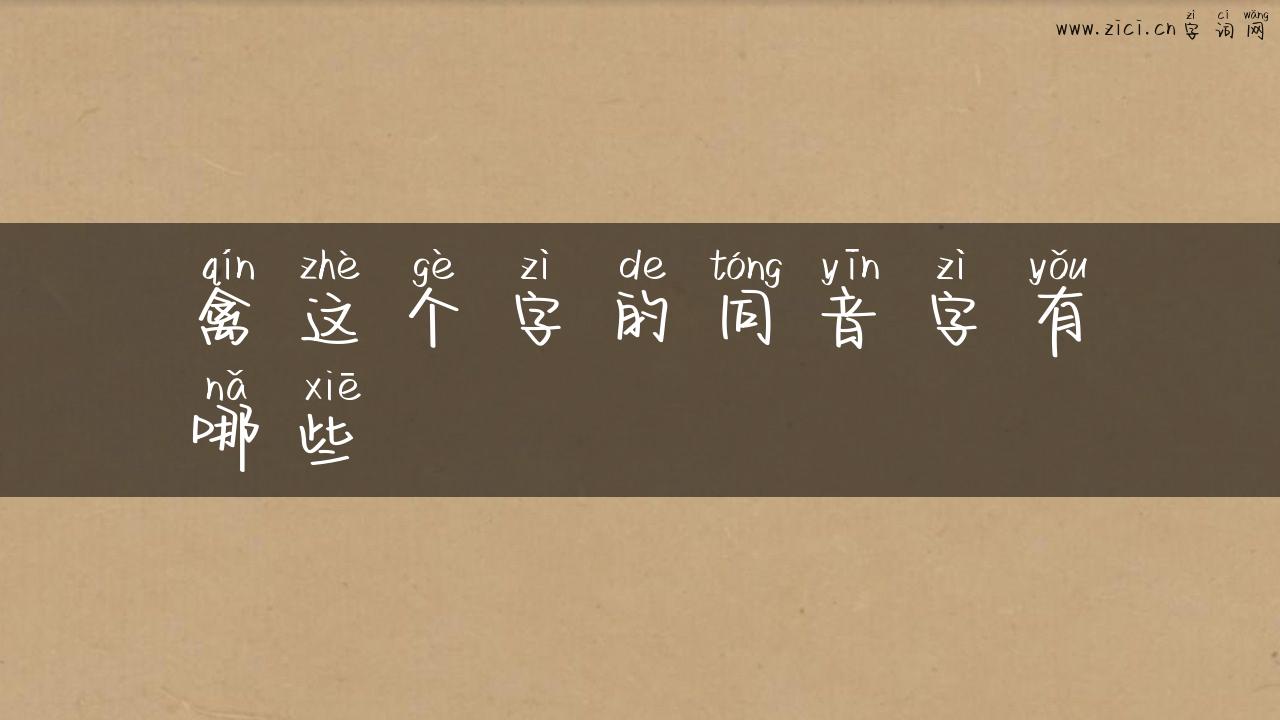 zì cí wǎng
www.zici.cn 字词网
qín zhè gè zì de tóng yīn zì yǒu
禽这个字的同音字有
nǎ xiē
哪些